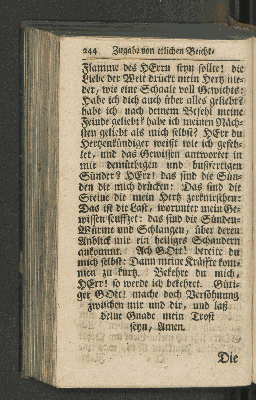 244 Zugabe von etlichen Beicht-
Flamme des HErrn seyn sollte! die
Liebe der Welt drückt mein Hertz nie-
der, wie eine Schaale voll Gewichts:
Habe ich dich auch über alles geliebt?
habe ich nach deinem Befehl meine
Feinde geliebt? habe ich meinen Näch-
sten geliebt als mich selbst? HErr du
Hertzenkündiger weißt wie ich gefeh-
let, und das Gewissen antwortet in
mir demüthigen und bußfertigen
Sünder? HErr! das sind die Sün-
den die mich drücken: Das sind die
Steine die mein Hertz zerknirschen:
Das ist die Last, worunter mein Ge-
wissen seuffzet: das sind die Sünden-
Würme und Schlangen, über deren
Anblick mir ein heiliges Schaudern
ankommt. Ach GOtt! bereite du
mich selbst: Dann meine Kräffte kom-
men zu kurtz. Bekehre du mich,
HErr! so werde ich bekehret. Güti-
ger GOtt! mache doch Versöhnung
zwischen mir und dir, und laß
deine Gnade mein Trost
seyn, Amen.
Die